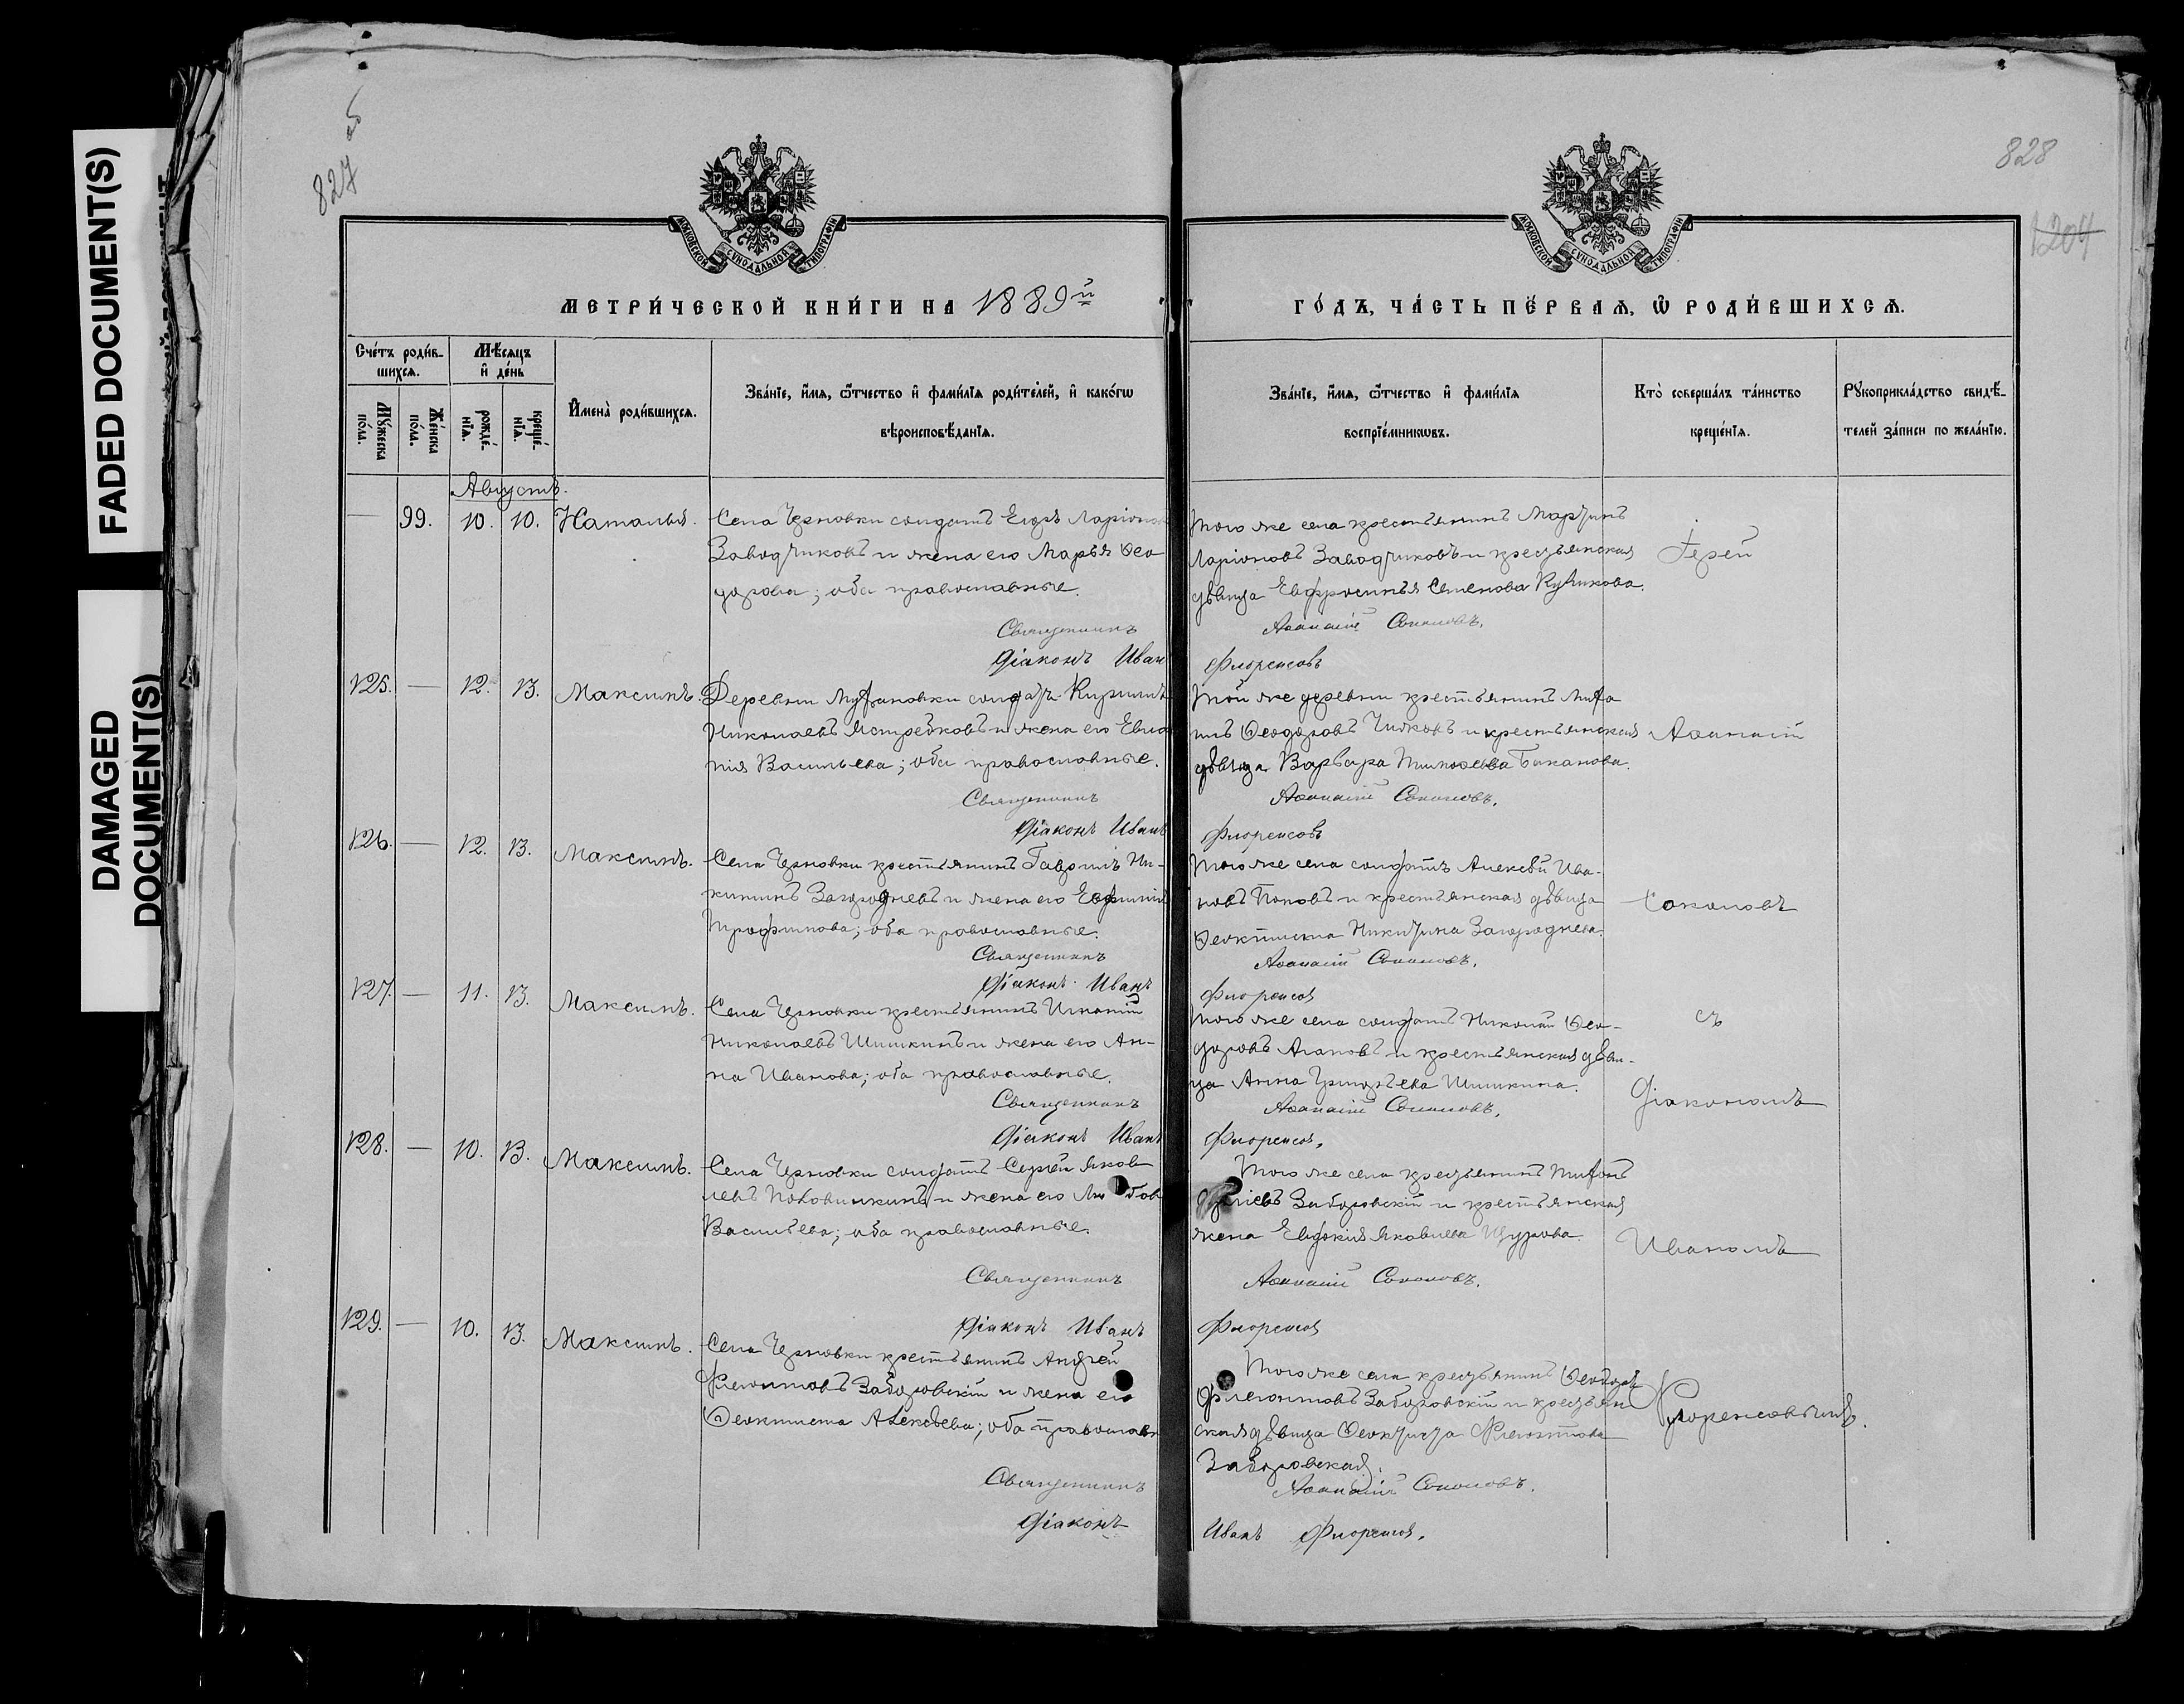 FADED DOCUMENT(S)
DAMAGED
DOCUMENT(S)
827
828
1204
МОСКОВСКОЙ СѴНОДАЛЬНОЙ ТИПОГРАФІИ
МОСКОВСКОЙ СѴНОДАЛЬНОЙ ТИПОГРАФІИ
МЕТРИ́ЧЕСКОЙ КНИ́ГИ НА 1889й
ГО́ДЪ, ЧА́СТЬ ПЕ́РВАѦ, Ѿ РОДИ́ВШИХСѦ.
Сче́тъ роди́в-
шихсѧ.
Мꙋ́жеска по́ла.
Же́нска по́ла.
Мѣ́сѧцъ
и҆ де́нь
рожде́-
нїѧ.
креще́-
нїѧ.
И҆мена̀ роди́вшихсѧ.
Зва́нїе, и҆́мѧ, ѻ҆́тчество и҆ фами́лїѧ роди́телей, и҆ како́гѡ
вѣроисповѣ́данїѧ.
Зва́нїе, и҆́мѧ, ѻ҆́тчество и҆ фами́лїѧ
воспрїе́мникѡвъ.
Кто̀ соверша́лъ та́инство
креще́нїѧ.
Рꙋкоприкла́дство свидѣ́-
телей за́писи по жела́нїю.
Августъ.
— 99. 10. 10. Наталья. Села Черновки солдатъ Егоръ Ларіонов
Заводчиковъ и жена его Марья Ѳео-
дорова; оба православные.
Того же села крестьянинъ Мартинъ
Ларіоновъ Заводчиковъ и крестьянская
дѣвица Евфросинья Семенова Куликова.
Іерей
Священникъ Аѳанасій Соколовъ.
Діаконъ Иван Флоренсовъ
125. — 12. 13. Максимъ. Деревни солдатъ Кириллъ
Николаевъ Ястребковъ и жена его Евла
пія Васильева; оба православные.
Той же деревни крестьянинъ Миха
илъ Ѳеодоровъ и крестьянская
дѣвица Варвара Тимоѳеева Баканова.
Аѳанасій
Священникъ Аѳанасій Соколовъ.
Діаконъ Иванъ Флоренсовъ
126. — 12. 13. Максимъ. Села Черновки крестьянинъ Гавріилъ Ни-
китинъ Загородневъ и жена его Евфимія
Трофимова; оба православные.
Того же села солдатъ Алексѣй Ива-
новъ Поповъ и крестьянская дѣвица
Ѳеоктиста Никитина Загороднева.
Соколовъ
Священникъ Аѳанасій Соколовъ.
Діаконъ Иванъ Флоренсов
127. — 11. 13. Максимъ. Села Черновки крестьянинъ Игнатій
Николаевъ Шишкинъ и жена его Ан-
на Иванова; оба православные.
Того же села солдатъ Николай Ѳео-
доровъ Агаповъ и крестьянская дѣви-
ца Анна Григорьева Шишкина.
съ
Діакономъ
Священникъ Аѳанасій Соколовъ.
Діаконъ Иванъ Флоренсов.
128. — 10. 13. Максимъ. Села Черновки солдатъ Сергѣй Яков
левъ Половинкинъ и жена его Любовь
Васильева; оба православные.
Того же села крестьянинъ Тихонъ
Заборовскій и крестьянская
жена Евдокія Яковлева Щурова.
Иваномъ
Священникъ Аѳанасій Соколовъ.
Діаконъ Иванъ Флоренсов
129. — 10. 13. Максимъ. Села Черновки крестьянинъ Андрей
Флегонтовъ Заборовскій и жена его
Ѳеоктиста Алексѣева; оба православн
Того же села крестьянинъ Ѳеодоръ
Флегонтовъ Заборовскій и крестьян
ская дѣвица Ѳеоктиста Флегонтова
Заборовская.
Флоренсовымъ.
Священникъ Аѳанасій Соколовъ.
Діаконъ Иванъ Флоренсов.